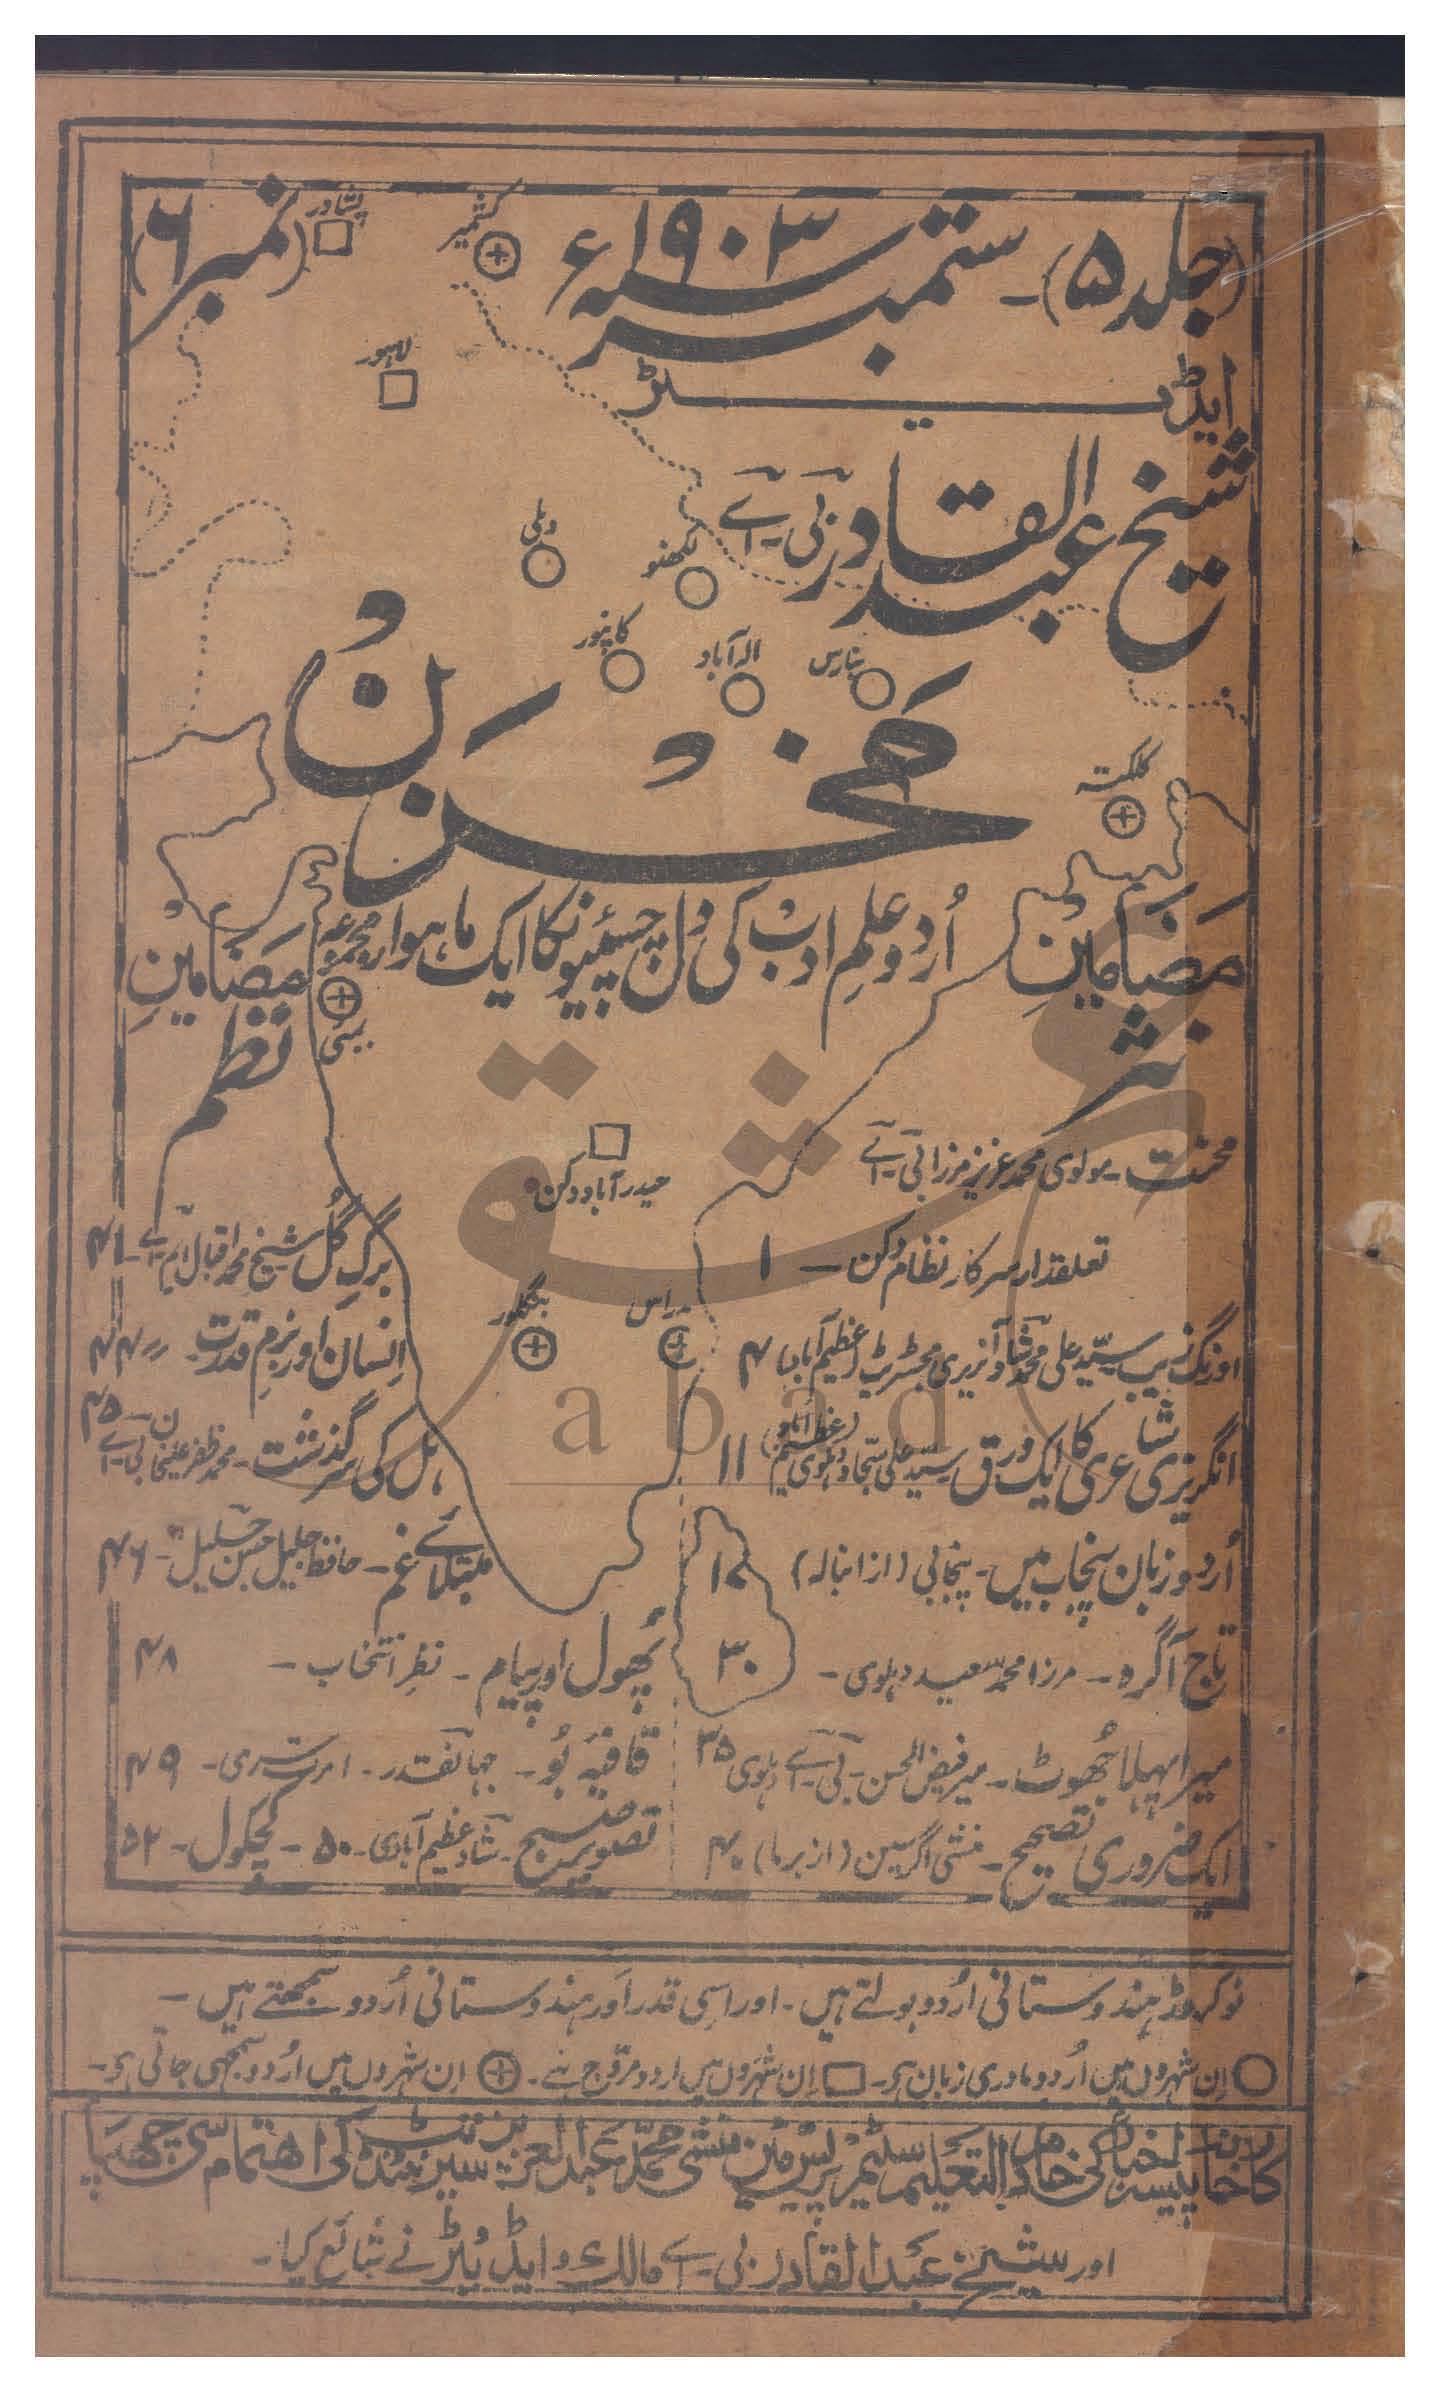 (جلد ۵)۔ ستمبر سنہ ۱۹۰۳ء (نمبر ۶)
پشاور
کشمیر
لاہور
ایڈیٹر
شیخ عبدالقادر بی۔اے
دہلی
لکھنو
کانپور
الہ آباد
بنارس
مخزن
کلکتہ
مضامین نثر
اُردو علم ادب کی دلچسپیونکا ایک ماہوار مجموعہ
مضامین نظم
بمبئی
حیدرآباد دکن
بنگلور
مدراس
محنت۔ مولوی محمد عزیز مرزا بی۔اے
تعلقدار سرکار نظام دکن۔ ۱
اورنگ زیب۔ سیّد علی محمد شاد آنریری مجسٹریٹ عظیم آباد ۴
انگریزی شاعری کا ایک ورق سیّد علی سجاد دہلوی (عظیم آباد) ۱۱
اُردو زبان پنجاب میں۔ پنجابی (از انبالہ)
تاج آگرہ۔ مرزا محمد سعید دہلوی۔ ۳۰
میرا پہلا جھوٹ۔ میر فیض الحسن۔ بی۔اے دہلوی ۳۵
ایک ضروری تصحیح۔ منشی اگرسین (از برما) ۴۰
برگِ گُل شیخ محمد اقبال ایم۔اے۔ ۴۱
اِنسان اور بزمِ قدرت ۴۴
ہل کی سرگذشت۔ محمد ظفر علیخاں بی۔اے ۴۵
مبتلائے غم۔ حافظ جلیل حسن جلیل۔ ۴۶
پھول اور پیام۔ نظرِ انتخاب۔ ۴۸
قافیہ بُو۔ جہانقدر۔ امرتسری۔ ۴۹
تصویر صبح۔ شاد عظیم آبادی۔ ۵۰۔ کچکول۔ ۵۲
abad
نو کروڑ ہندوستانی اُردو بولتے ہیں۔ اور اسی قدر اور ہندوستانی اُردو سمجھتے ہیں۔
اِن شہروں میں اُردو مادری زبان ہی۔ اِن شہروں میں اردو مروّج ہے۔ اِن شہروں میں اُردو سمجھی جاتی ہی۔
کارخانہ پیسہ اخبار کی خادم التعلیم سٹیم پریس میں منشی محمد عبدالعزیز سپرنٹنڈنٹ کی اہتمام سی چھپا
اور شیخ عبدالقادر بی۔اے مالک و ایڈیٹر نے شائع کیا۔